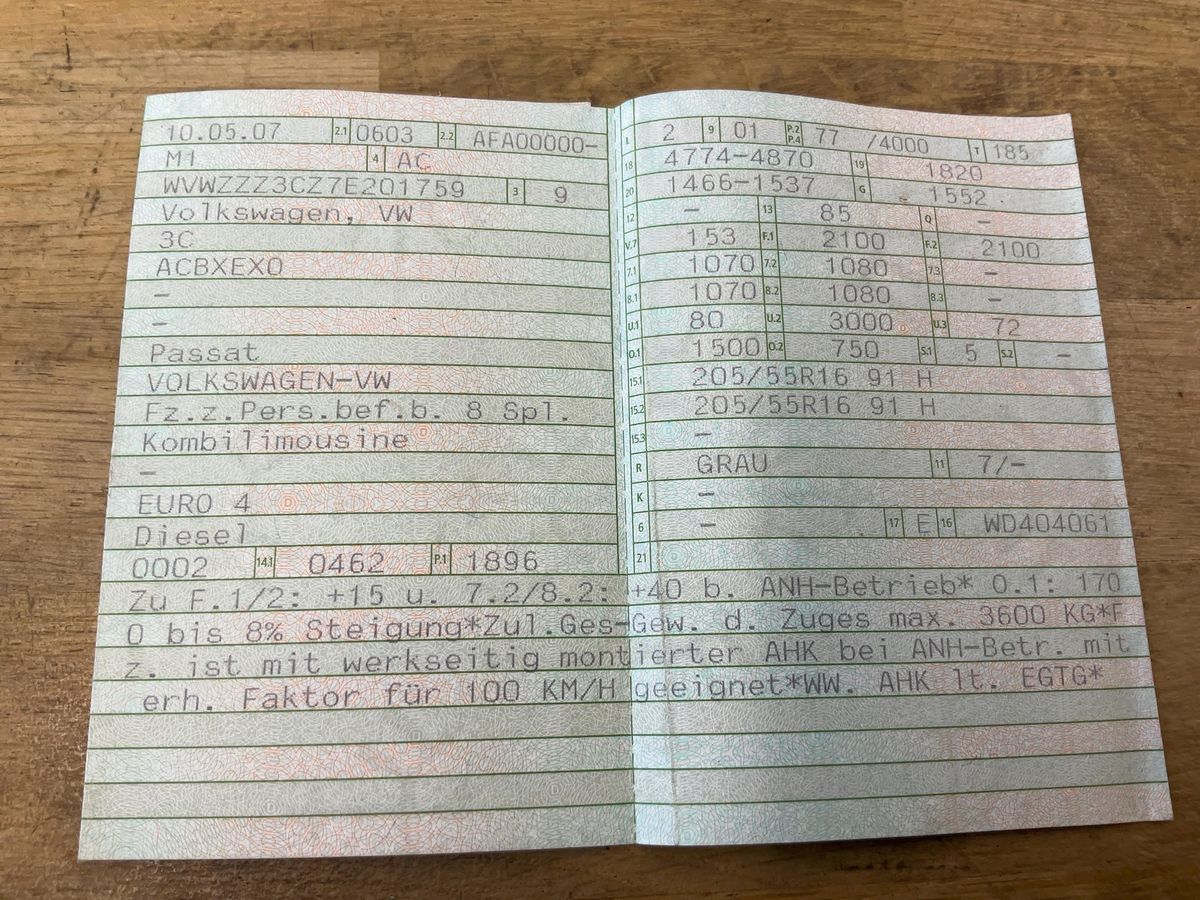 10.05.07 2.1 0603 2.2 AFA00000-
M1 4 AC
WVWZZZ3CZ7E201759 3 9
Volkswagen, VW
3C
ACBXEX0
-
-
Passat
VOLKSWAGEN-VW
Fz.z.Pers.bef.b. 8 Spl.
Kombilimousine
-
EURO 4
Diesel
0002 14.1 0462 P.1 1896
L 2 9 01 P.2 P.4 77 /4000 T 185
18 4774-4870 19 1820
20 1466-1537 G 1552
12 - 13 85 Q -
V.7 153 F.1 2100 F.2 2100
7.1 1070 7.2 1080 7.3 -
8.1 1070 8.2 1080 8.3 -
U.1 80 U.2 3000 U.3 72
O.1 1500 O.2 750 S.1 5 S.2 -
15.1 205/55R16 91 H
15.2 205/55R16 91 H
15.3 -
R GRAU 11 7/-
K -
6 - 17 E 16 WD404061
21
Zu F.1/2: +15 u. 7.2/8.2: +40 b. ANH-Betrieb* O.1: 170
0 bis 8% Steigung*Zul.Ges-Gew. d. Zuges max. 3600 KG*F
z. ist mit werkseitig montierter AHK bei ANH-Betr. mit
erh. Faktor für 100 KM/H geeignet*WW. AHK lt. EGTG*